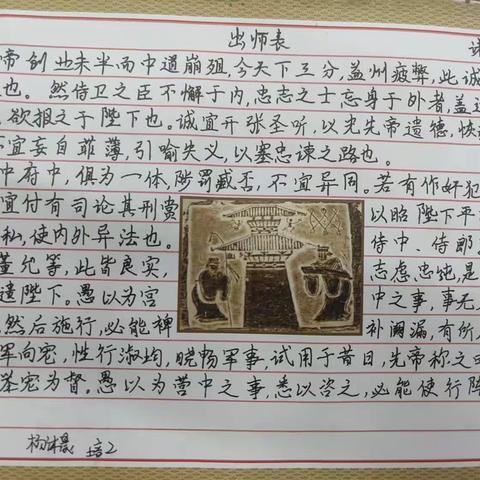 出师表 诸
帝创业未半而中道崩殂,今天下三分,益州疲弊,此诚
也。然侍卫之臣不懈于内,忠志之士忘身于外者,盖追
欲报之于陛下也。诚宜开张圣听,以光先帝遗德,恢
不宜妄自菲薄,引喻失义,以塞忠谏之路也。
中府中,俱为一体,陟罚臧否,不宜异同。若有作奸犯
宜付有司论其刑赏 以昭陛下平
私,使内外异法也。 侍中、侍郎
董允等,此皆良实, 志虑忠纯,是
遗陛下。愚以为宫 中之事,事无
然后施行,必能裨 补阙漏,有所
军向宠,性行淑均,晓畅军事,试用于昔日,先帝称之曰
举宠为督。愚以为营中之事,悉以咨之,必能使行阵